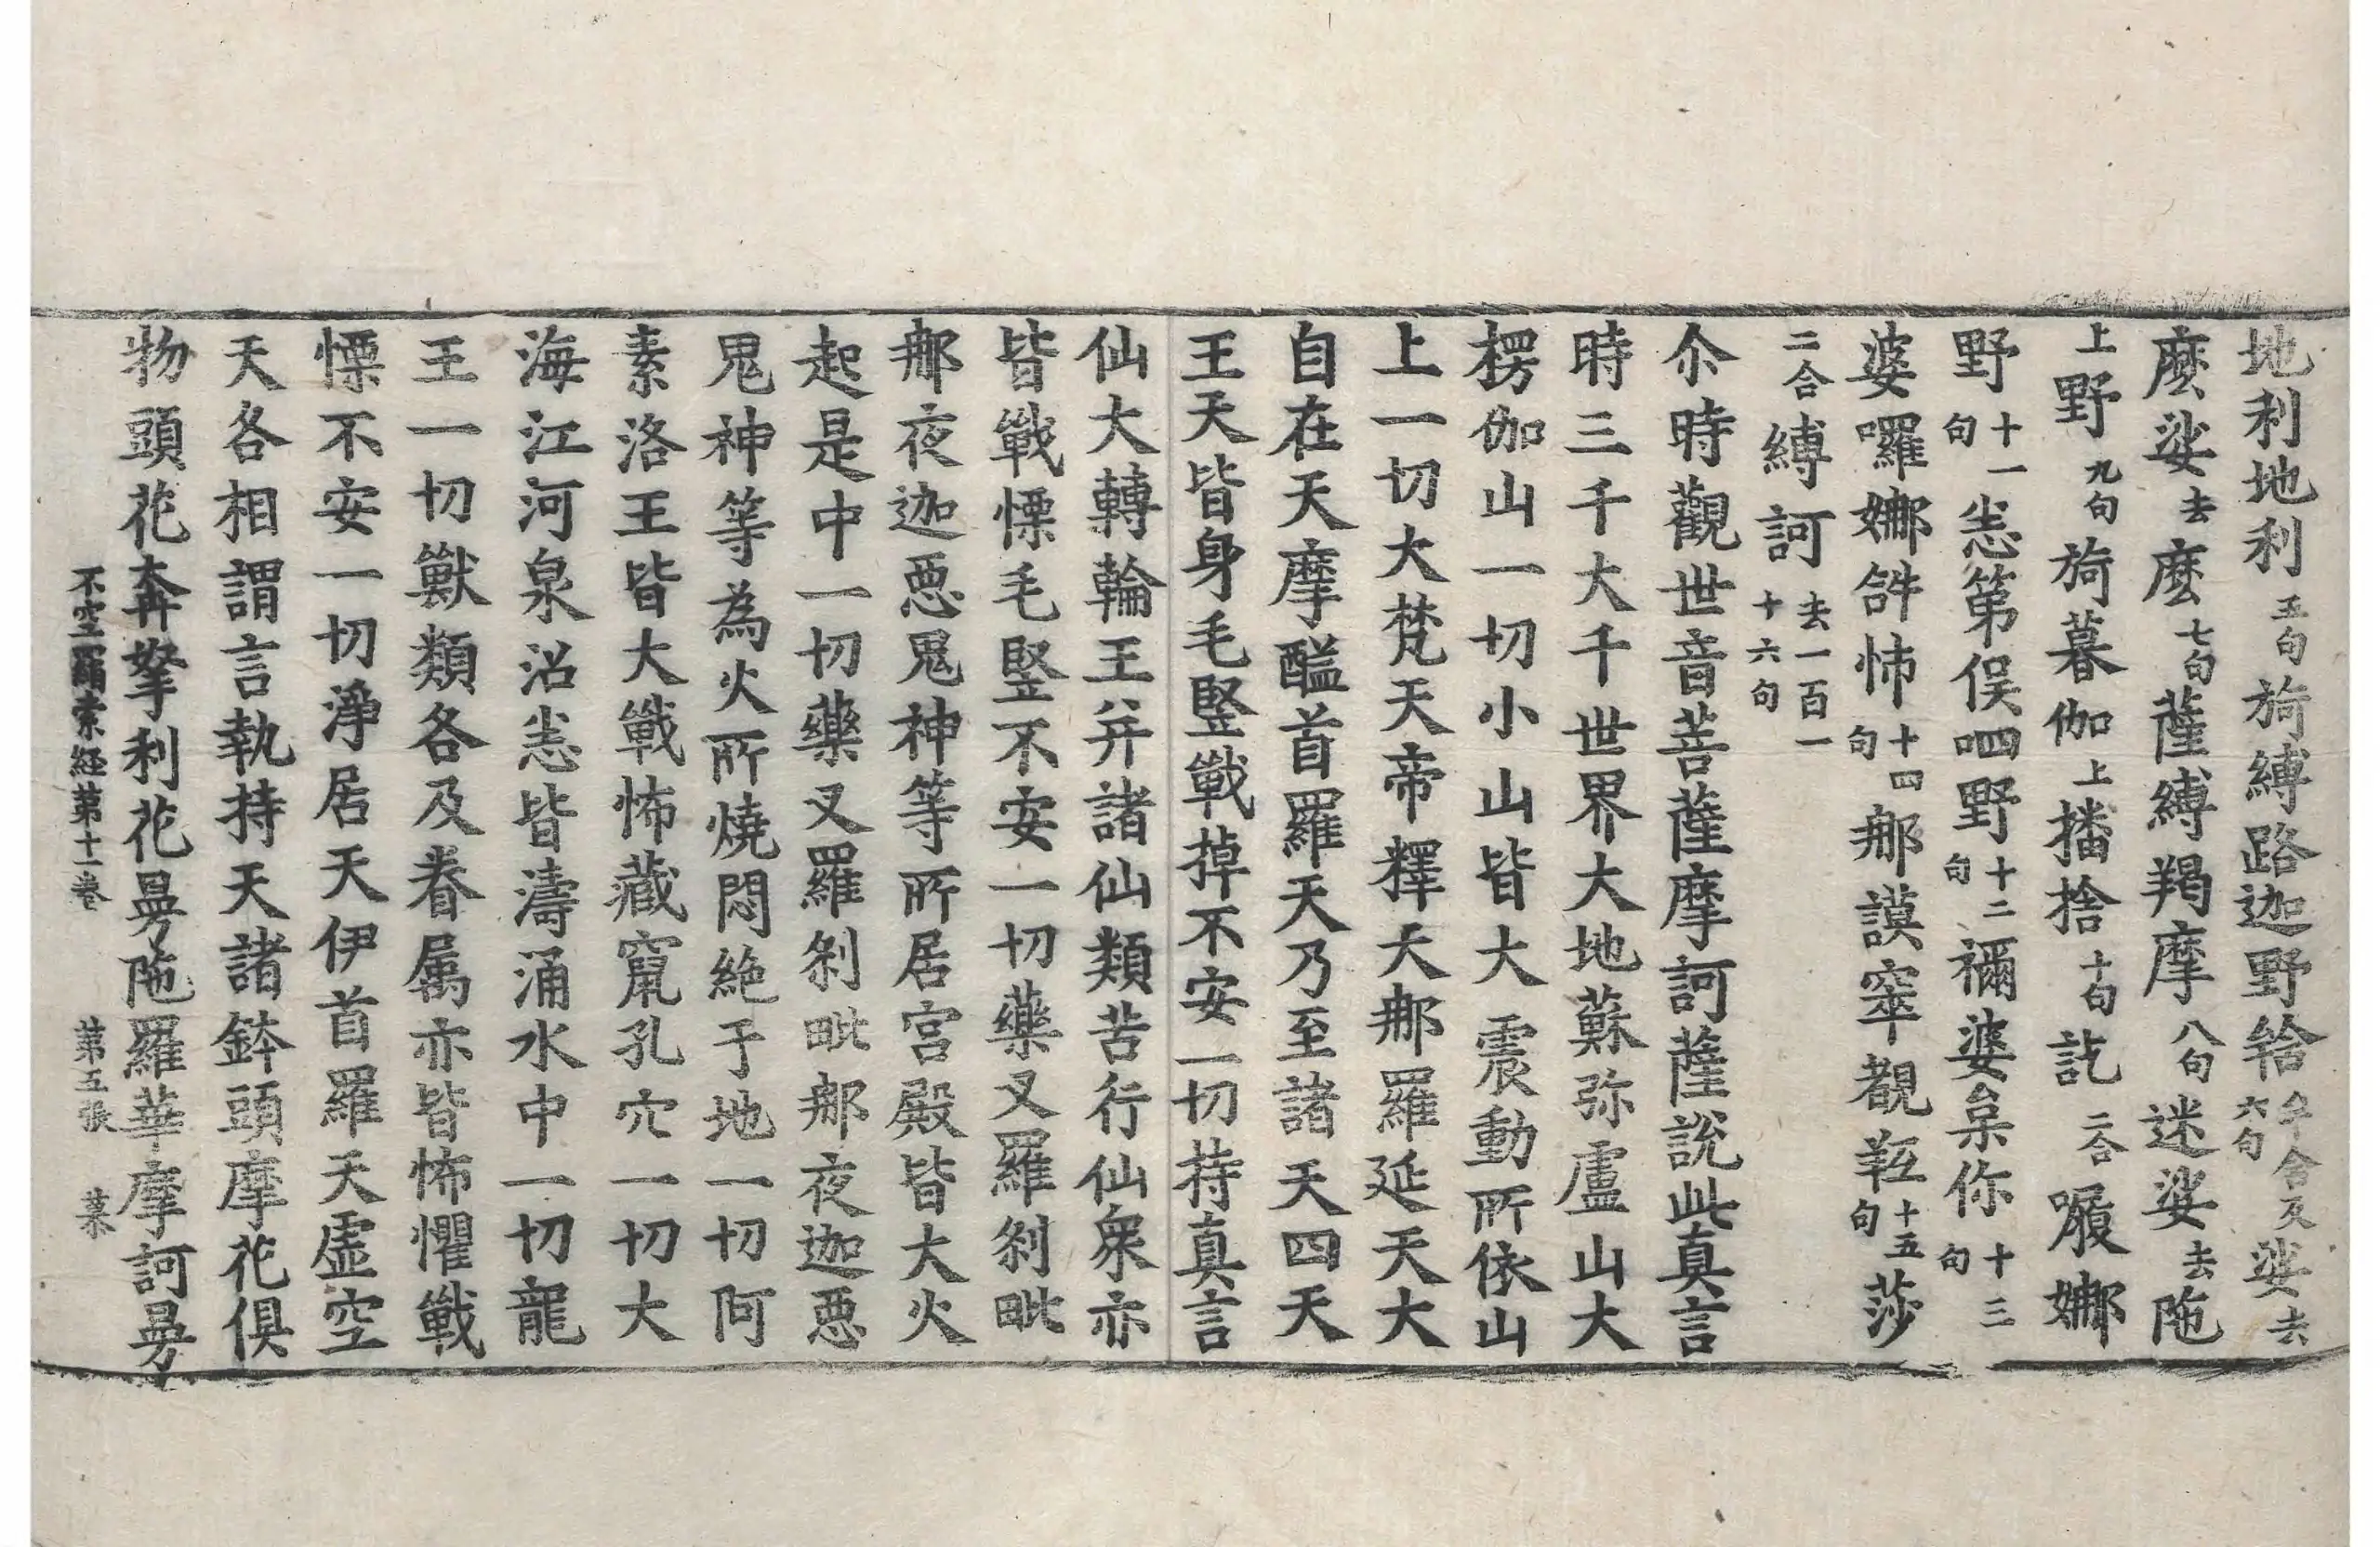 地利地利五句旖縛路迦野𤚥牟含反六句娑去
麽娑去麽七句薩縛羯摩八句迷娑去陁
上野九句旖暮伽上播捨十句訖二合囇娜
野十一句恙第俁呬野十二句禰婆皋你十三句
婆囉娜䛔怖十四句那謨窣覩䍧十五句莎
二合縛訶去一百一十六句
尒時觀世音菩薩摩訶薩說此真言
時三千大千世界大地蘇弥盧山大
楞伽山一切小山皆大震動所依山
上一切大梵天帝釋天那羅延天大
自在天摩醯首羅天乃至諸天四天
王天皆身毛竪戰掉不安一切持真言
仙大轉輪王并諸仙類苦行仙衆亦
皆戰慄毛竪不安一切藥叉羅剎毗
那夜迦惡鬼神等所居宮殿皆大火
起是中一切藥叉羅剎毗那夜迦惡
鬼神等為火所燒悶絶于地一切阿
素洛王皆大戰怖藏竄孔穴一切大
海江河泉沼恙皆濤涌水中一切龍
王一切獸類各及眷属亦皆怖懼戰
慄不安一切淨居天伊首羅天虛空
天各相謂言執持天諸鉢頭摩花俱
物頭花奔拏利花曼陁羅華摩訶曼
不空羂索経第十一卷　第五張　菜